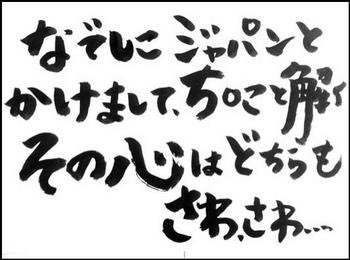 なでしこジャパンと
かけまして、ち○こと解く
その心はどちらも
さわ、さわ…